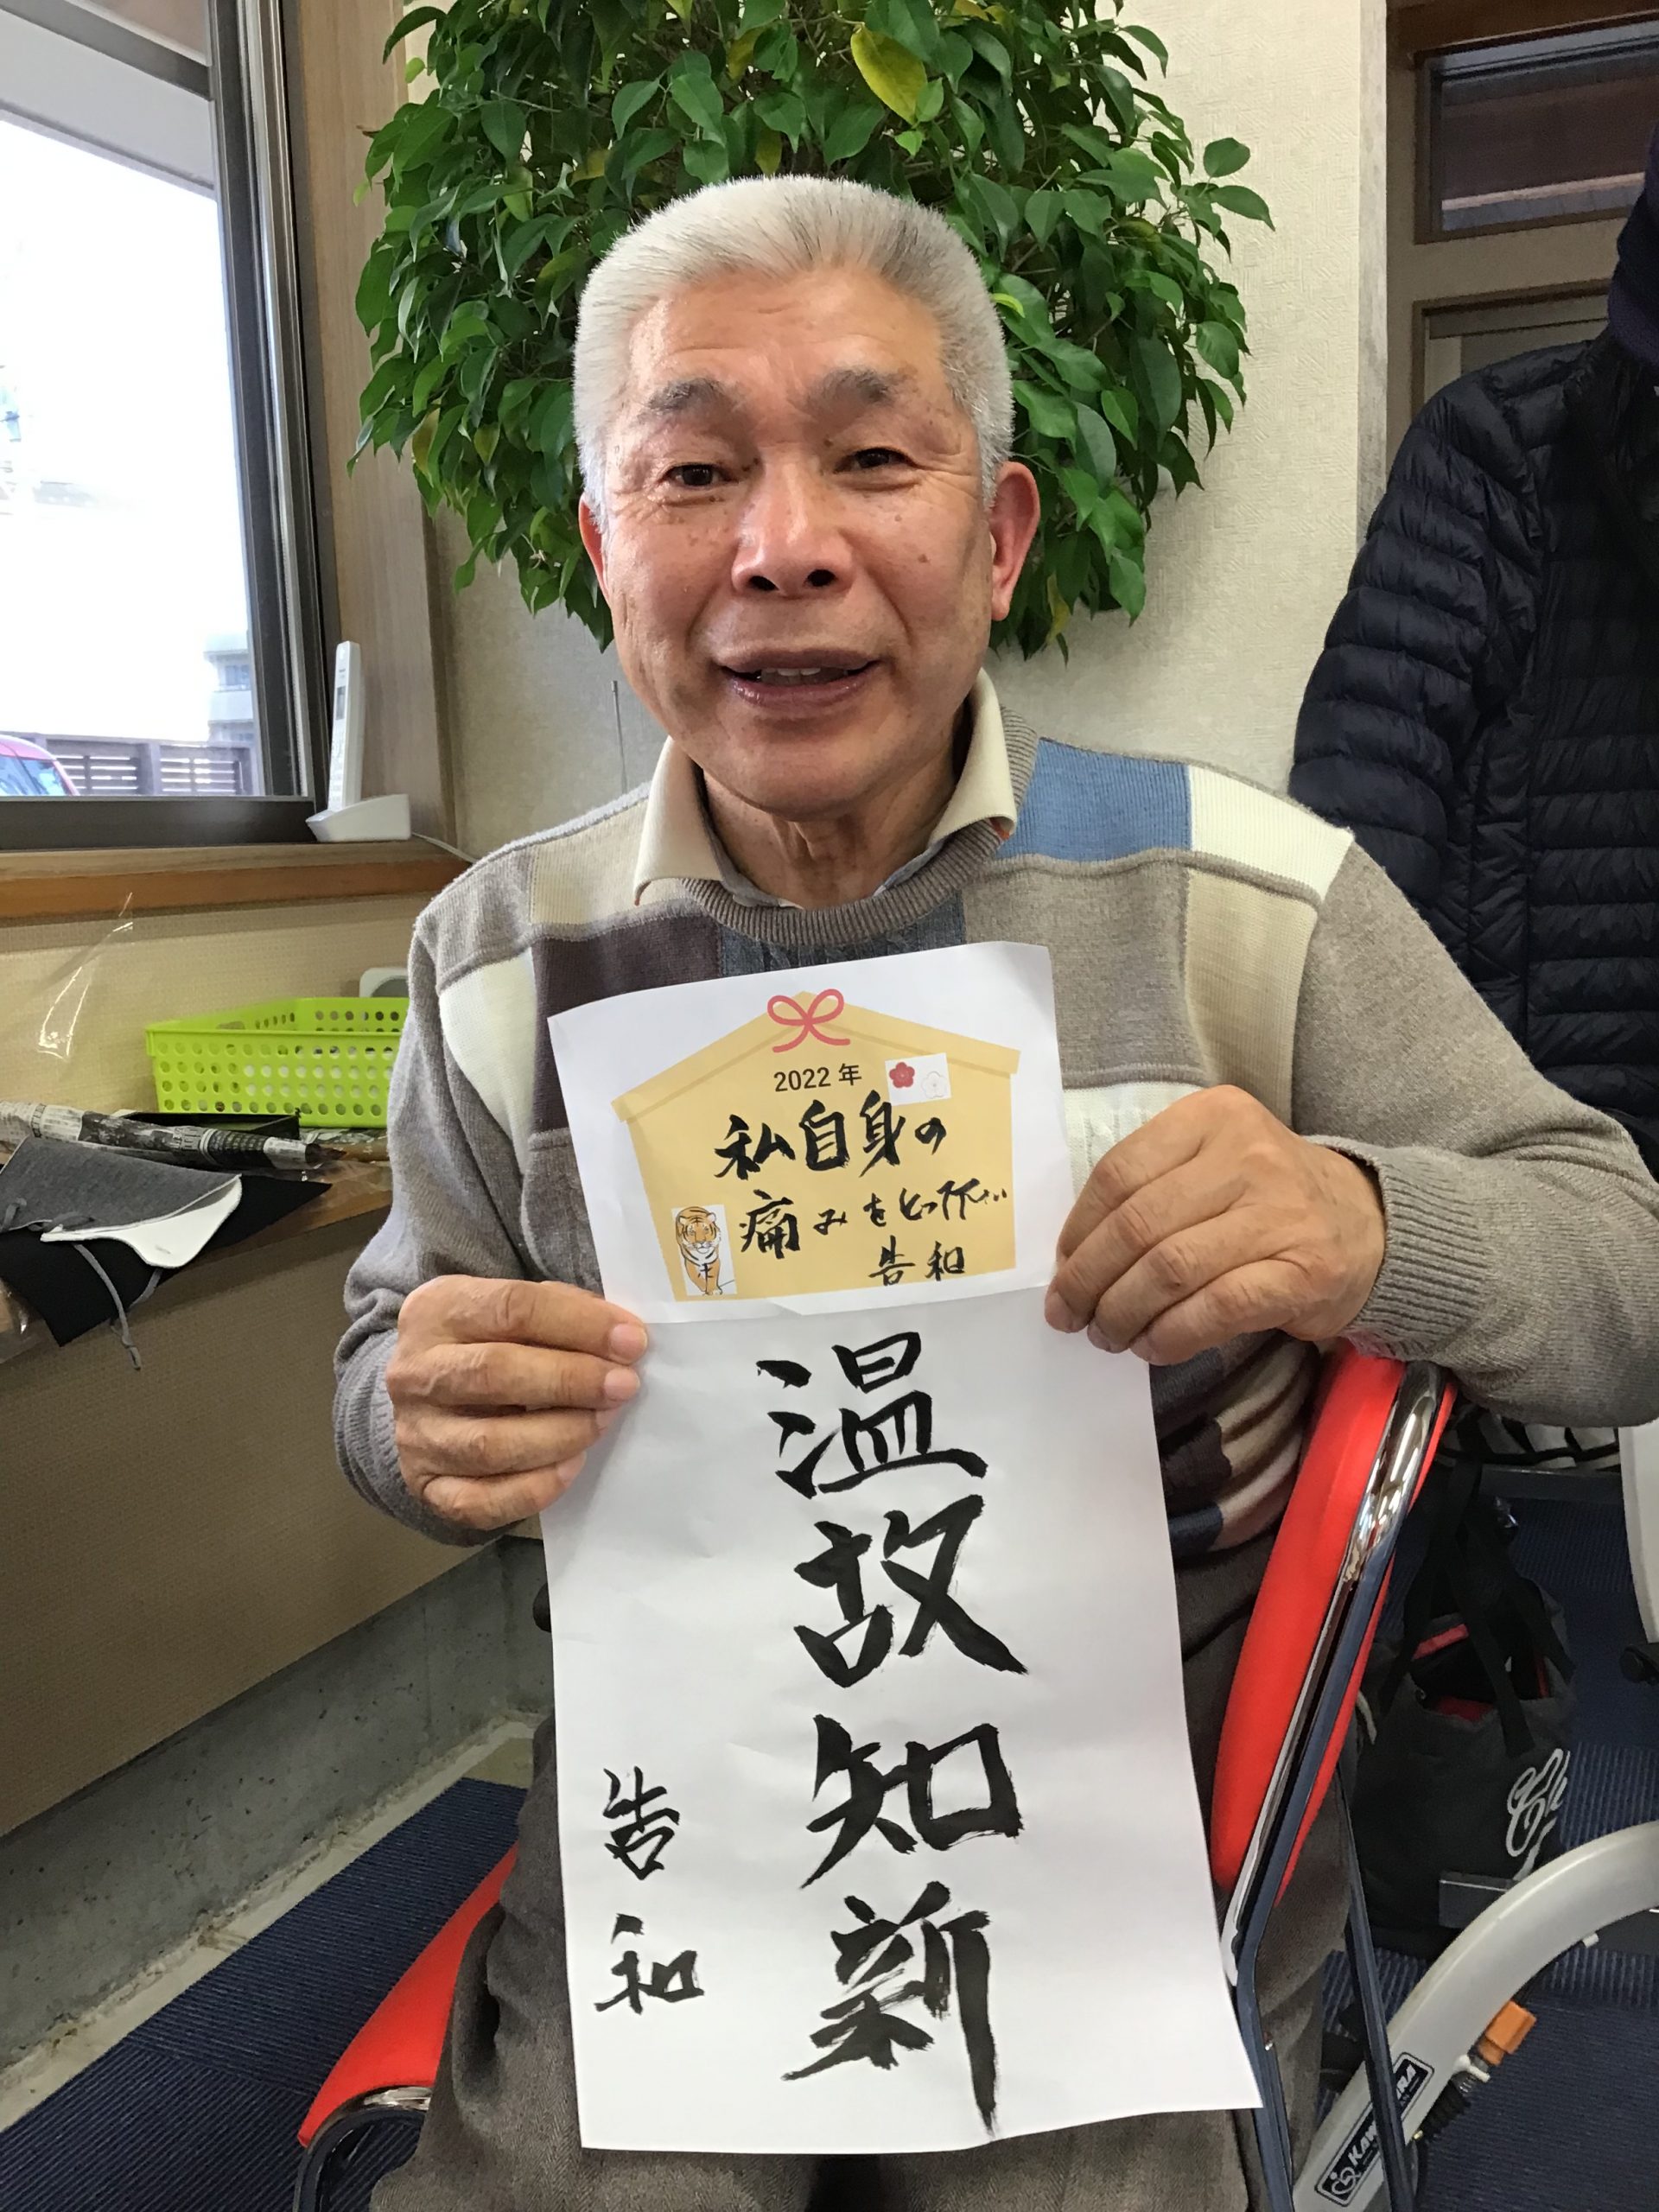 2022年
私自身の
痛みをとって下さい
告和
温故知新
告和